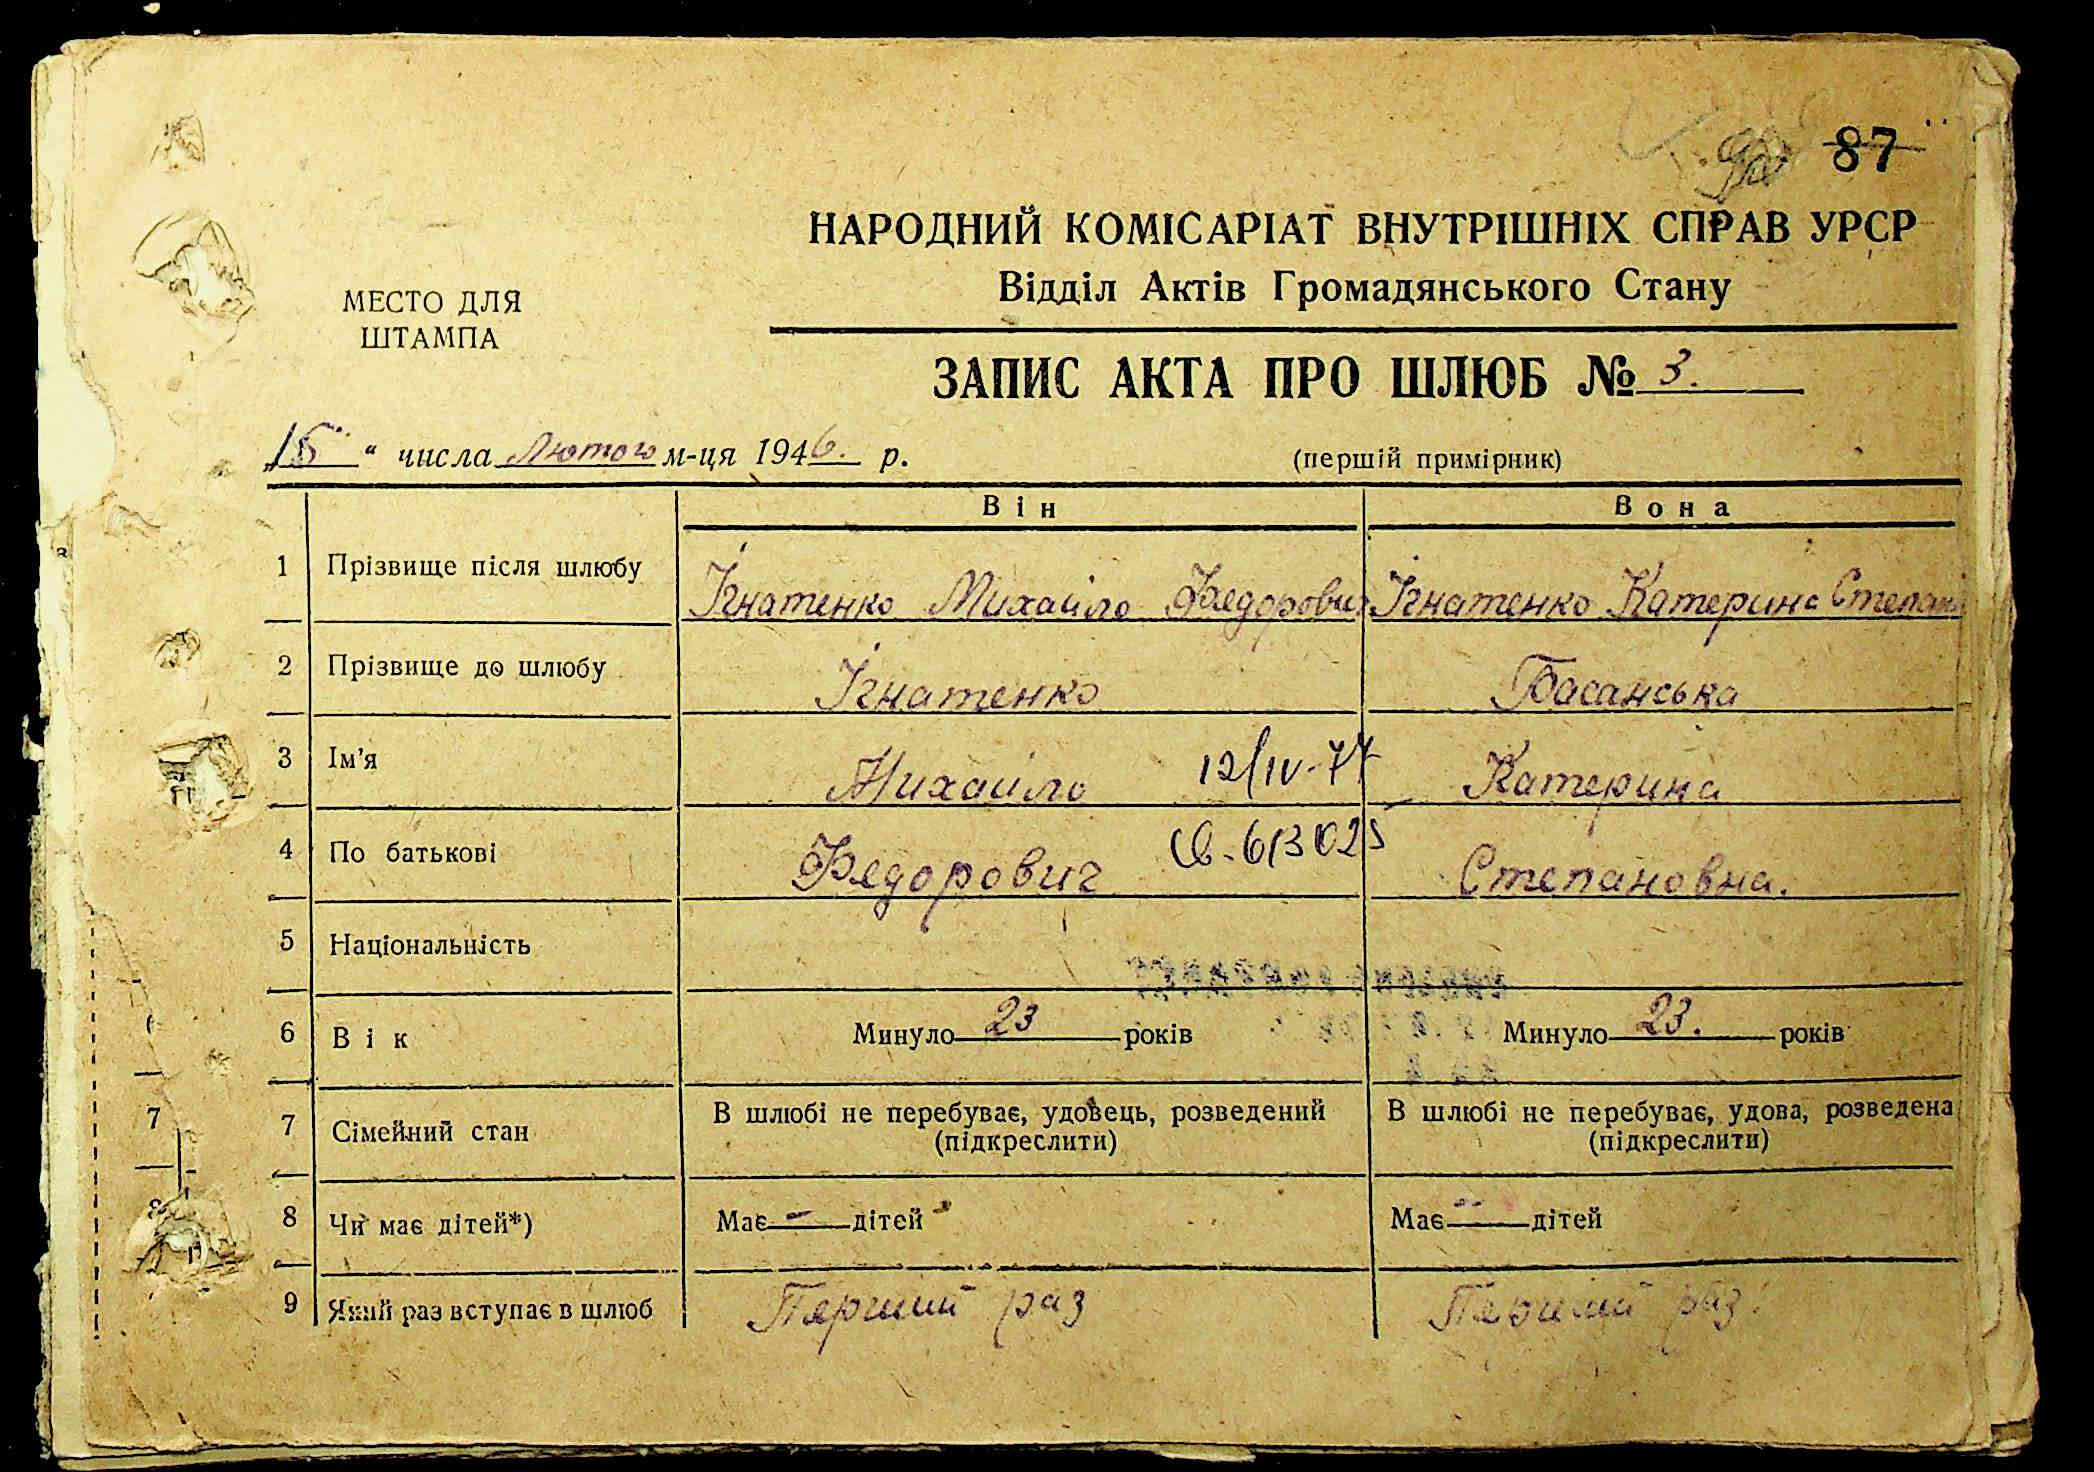 87
НАРОДНИЙ КОМІСАРІАТ ВНУТРІШНІХ СПРАВ УРСР
Відділ Актів Громадянського Стану
МЕСТО ДЛЯ
ШТАМПА
ЗАПИС АКТА ПРО ШЛЮБ № 3.
„15“ числа Лютого м-ця 1946. р.
(першій примірник)
Він Вона
1 Прізвище після шлюбу Ігнатенко Михайло Федорович Ігнатенко Катерина Степан
2 Прізвище до шлюбу Ігнатенко Басанська
3 Ім'я Михайло 12/IV-77 Катерина
4 По батькові Федорович Степановна.
5 Національність
6 Вік Минуло 23 років Минуло 23. років
7 7 Сімейний стан В шлюбі не перебуває, удовець, розведений В шлюбі не перебуває, удова, розведена
(підкреслити) (підкреслити)
8 8 Чи має дітей*) Має - дітей Має - дітей
9 Який раз вступає в шлюб Перший раз Перший раз.